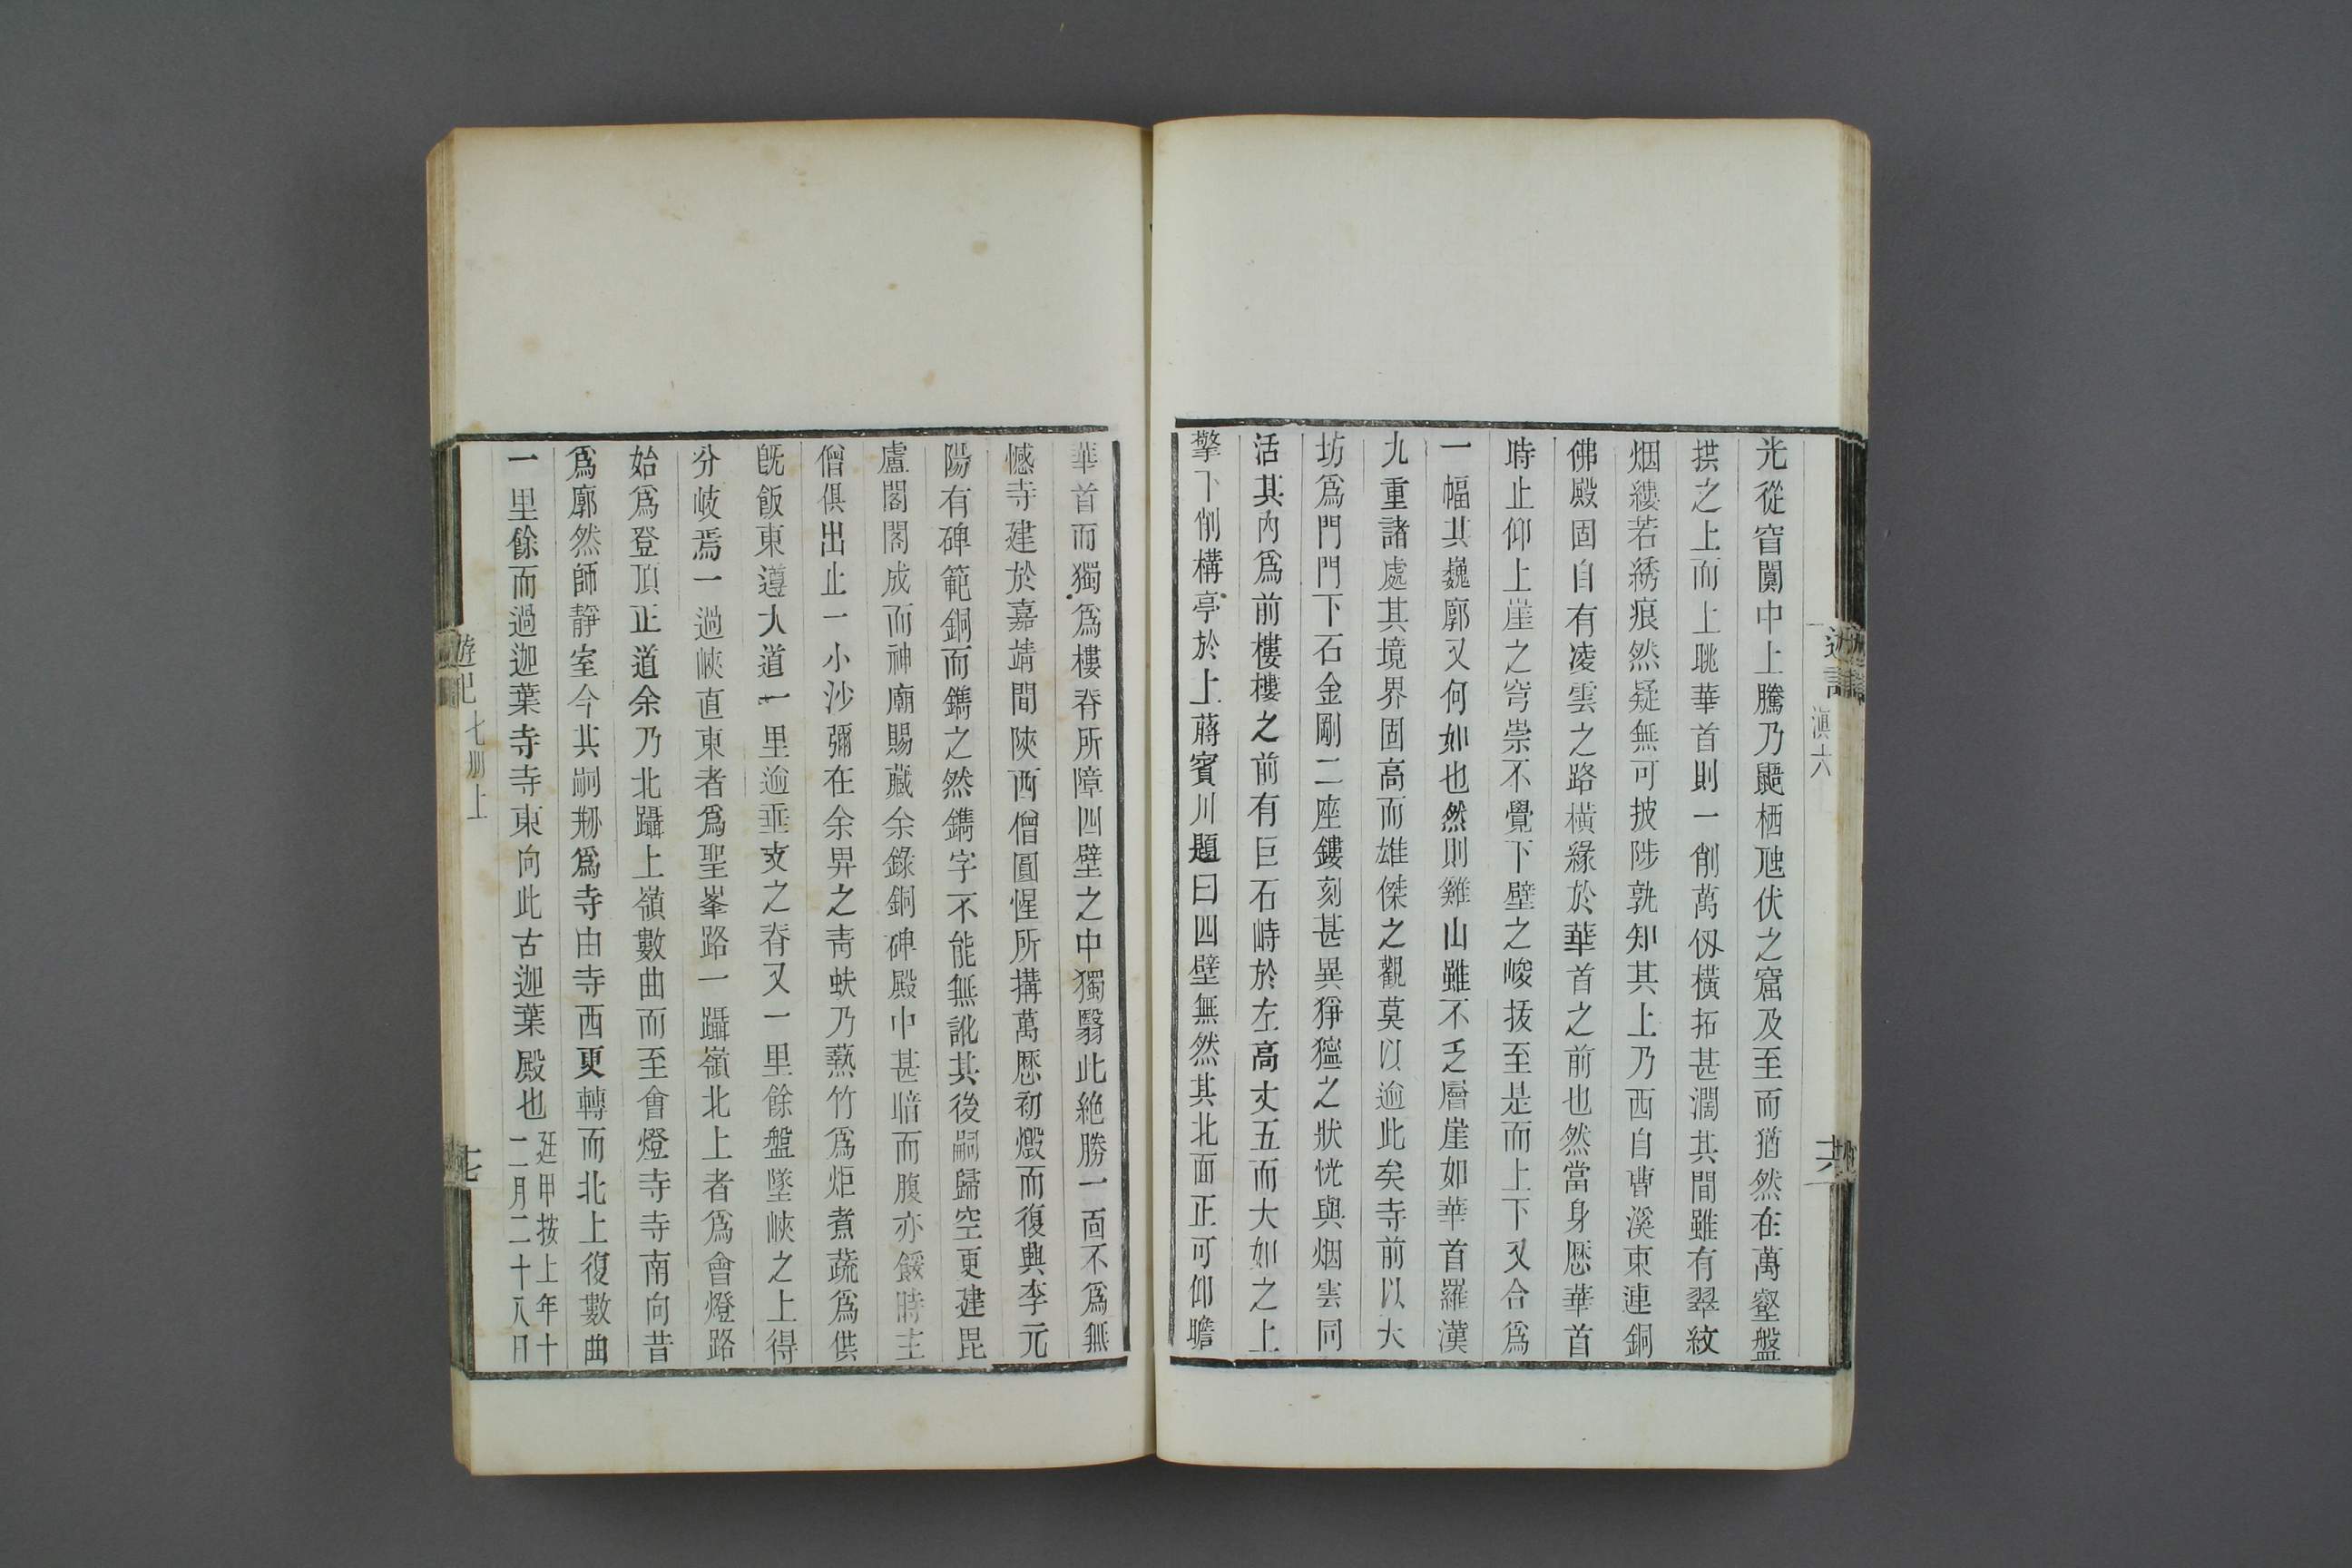 光從窅闃中上騰乃鼯栖虺伏之窟及至而猶然在萬壑盤
拱之上而上眺華首則一削萬仭橫拓甚濶其間雖有翠紋
烟縷若綉痕然疑無可披陟孰知其上乃西自曹溪東連銅
佛殿固自有凌雲之路橫緣於華首之前也然當身歷華首
時止仰上崖之穹崇不覺下壁之峻拔至是而上下又合爲
一幅其巍廓又何如也然則雞山雖不乏層崖如華首羅漢
九重諸處其境界固高而雄傑之觀莫以逾此矣寺前以大
坊爲門門下石金剛二座鏤刻甚異猙獰之狀恍與烟雲同
活其內爲前樓樓之前有巨石峙於左高丈五而大如之上
擎下削構亭於上蔣賓川題曰四壁無然其北面正可仰瞻
遊記
滇六
華首而獨爲樓脊所障四壁之中獨翳此絶勝一面不爲無
憾寺建於嘉靖間陝西僧圓惺所搆萬歷初燬而復興李元
陽有碑範銅而鐫之然鐫字不能無訛其後嗣歸空更建毘
盧閣閣成而神廟賜藏余錄銅碑殿中甚暗而腹亦餒時主
僧俱出止一小沙彌在余畀之青蚨乃爇竹爲炬煮蔬爲供
旣飯東遵大道一里逾垂支之脊又一里餘盤墜峽之上得
分岐焉一過峽直東者爲聖峯路一躡嶺北上者爲會燈路
始爲登頂正道余乃北躡上嶺數曲而至會燈寺寺南向昔
爲廓然師靜室今其嗣剏爲寺由寺西更轉而北上復數曲
一里餘而過迦葉寺寺東向此古迦葉殿也廷甲按上年十
二月二十八日
遊記
七册上